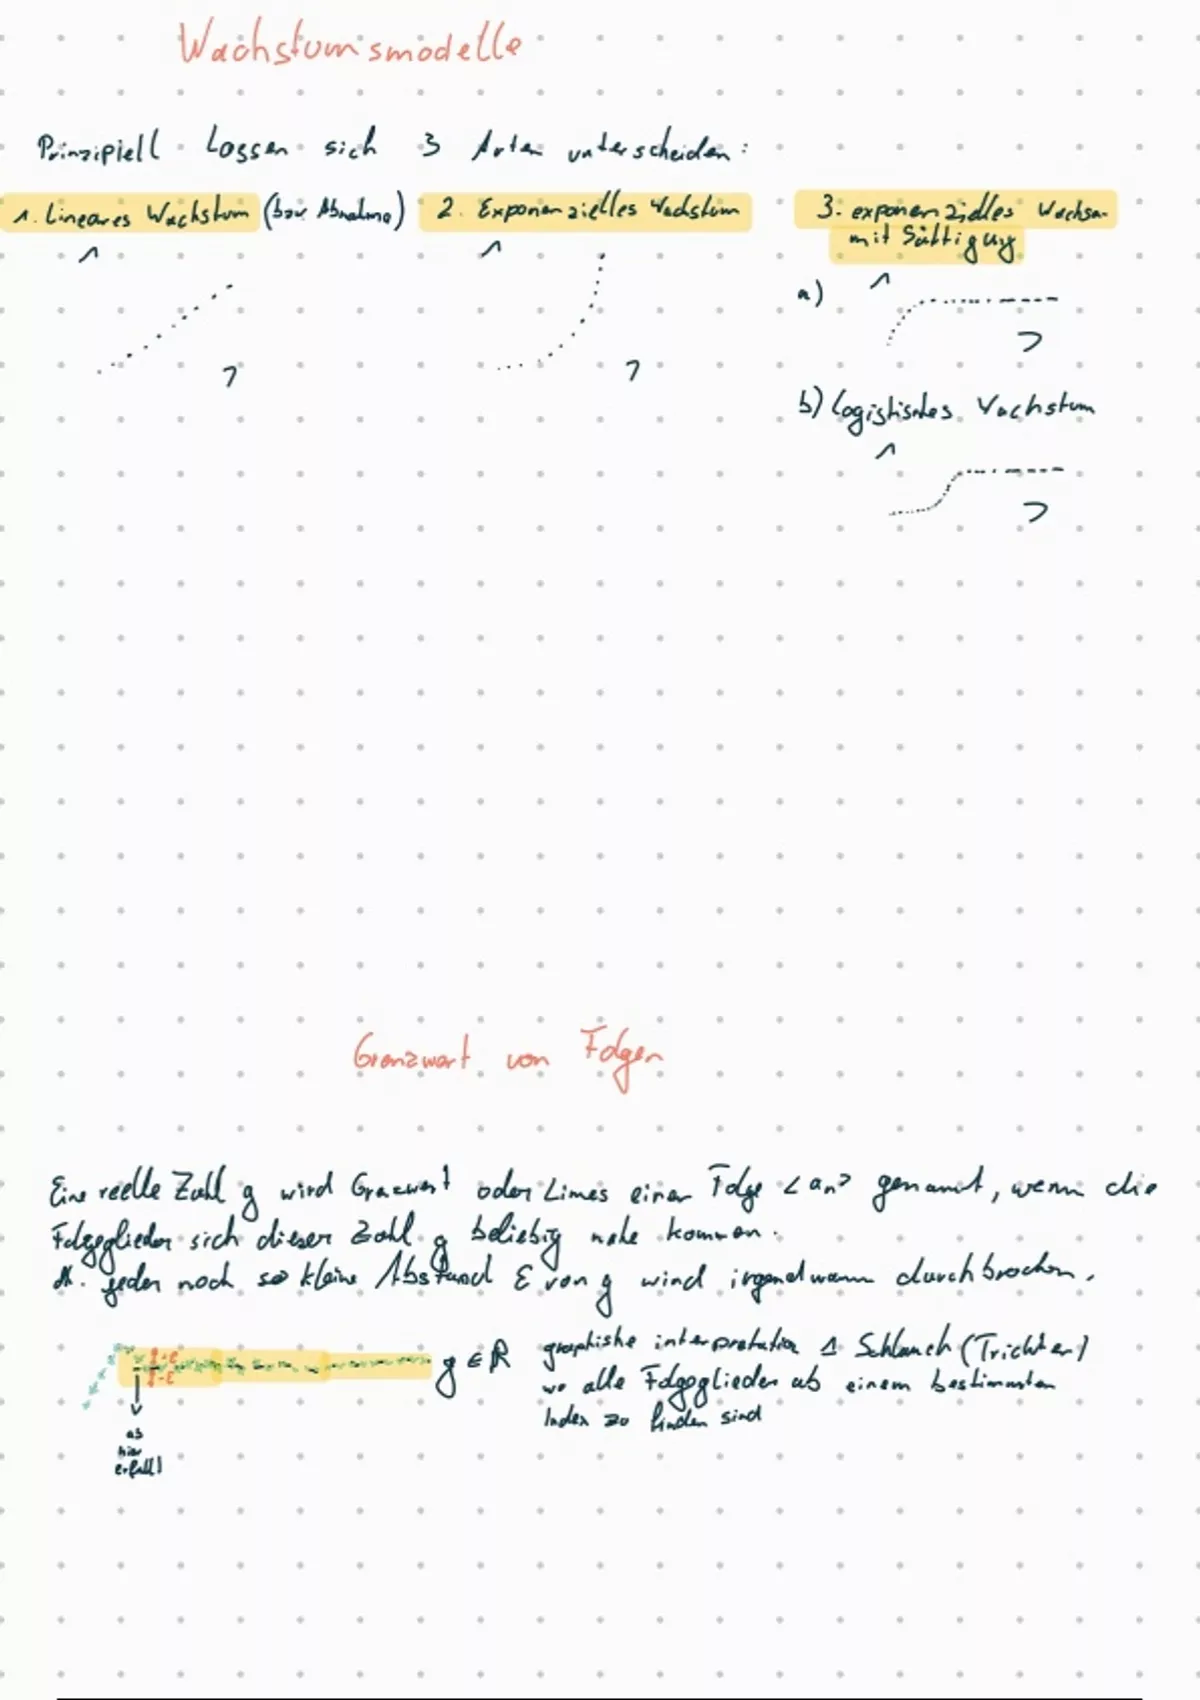 Wachstumsmodelle
Prinzipiell lassen sich 3 Arten unterscheiden:
1. Lineares Wachstum (bzw. Abnahme)
2. Exponenzielles Wachstum
3. exponenzielles Wachs.
mit Sättigung
a)
b) Logistisches Wachstum
Grenzwert von Folgen
Eine reelle Zahl g wird Grenzwert oder Limes einer Folge <an> genannt, wenn die
Folgeglieder sich dieser Zahl g beliebig nahe kommen.
dh. jeder noch so kleine Abstand ε von g wird irgendwann durchbrochen.
+ε
-ε
g ∈ ℝ
ab
hier
erfüllt
graphishe interpretation 1 Schlauch (Trichter)
wo alle Folgeglieder ab einem bestimmten
Index zu finden sind